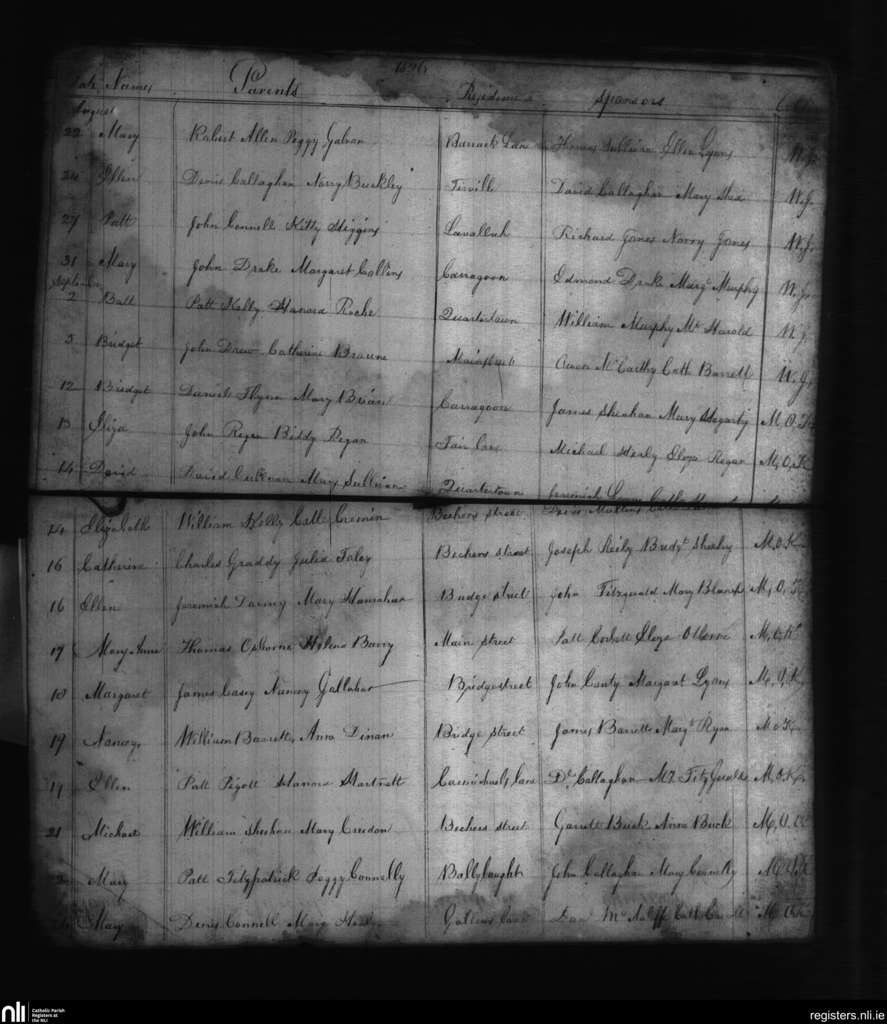 Date Names Parents 1826 Residence Sponsors
August
22 Mary Robert Allen Peggy Galvan Barrack Lane Thomas Sullivan Ellen Lyons W.J.
24 Ellen Denis Callaghan Norry Buckley Firville David Callaghan Mary Shea W.J.
27 Patt John Connell Kitty Higgins Lavalluh Richard Jones Norry Jones W.J.
31 Mary John Drake Margaret Collins Carragoon Edmond Drake Margt Murphy W.J.
September
2 Patt Kelly Hanora Roche Quartertown William Murphy Harold W.J.
5 Bridget John Drew Catherine Braune Mainstreet Owen McCarthy Cath Barrett W.J.
12 Bridget Daniel Mary Brian Carragoon James Sheehan Mary Hegarty M.O.K.
13 Eliza John Regan Biddy Regan Fair Lane Michael Healy Eliza Regan M.O.K.
14 David David Mary Sullivan Quartertown Jeremiah
14 Elizabeth William Kelly Cath Cremin Bechers street Denis Mullins
16 Catherine Charles Graddy Julia Foley Bechers street Joseph Reily Bridgt Sheehy M.O.K.
16 Ellen Jeremiah Mary Hanrahan Bridge street John Fitzgerald Mary M.O.K.
17 Mary Anne Thomas Osborne Helena Barry Main street Patt Corbett Eliza Osborne M.O.K.
18 Margaret James Casey Nancy Gallahar Bridgestreet John Canty Margaret Lyons M.O.K.
19 Nancy William Barrett Anna Dinan Bridge street James Barrett Margt Ryan M.O.K.
19 Ellen Patt Pigott Hanora Hartnett Carmichaels Lane Dl. Callaghan M. FitzGerald M.O.K.
21 Michael William Sheehan Mary Creedon Bechers street Garrett Buck Anna Buck M.O.K.
Mary Patt Fitzpatrick Peggy Connelly Ballylought John Callaghan Mary Connelly M.O.K.
Mary Denis Connell Mary Gallows Lane Danl McAuliff Cath M.O.K.
nli Catholic Parish
Registers at
the NLI
registers.nli.ie